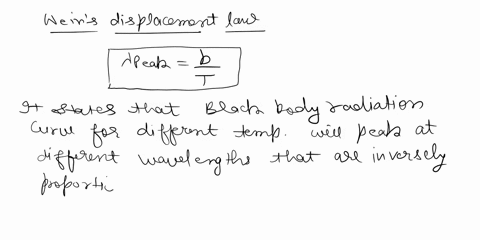 Wein's displacement law
λPeak = b/T
It states that Black body radiation
Curve for different temp. will peak at
different wavelengths that are inversely
proporti